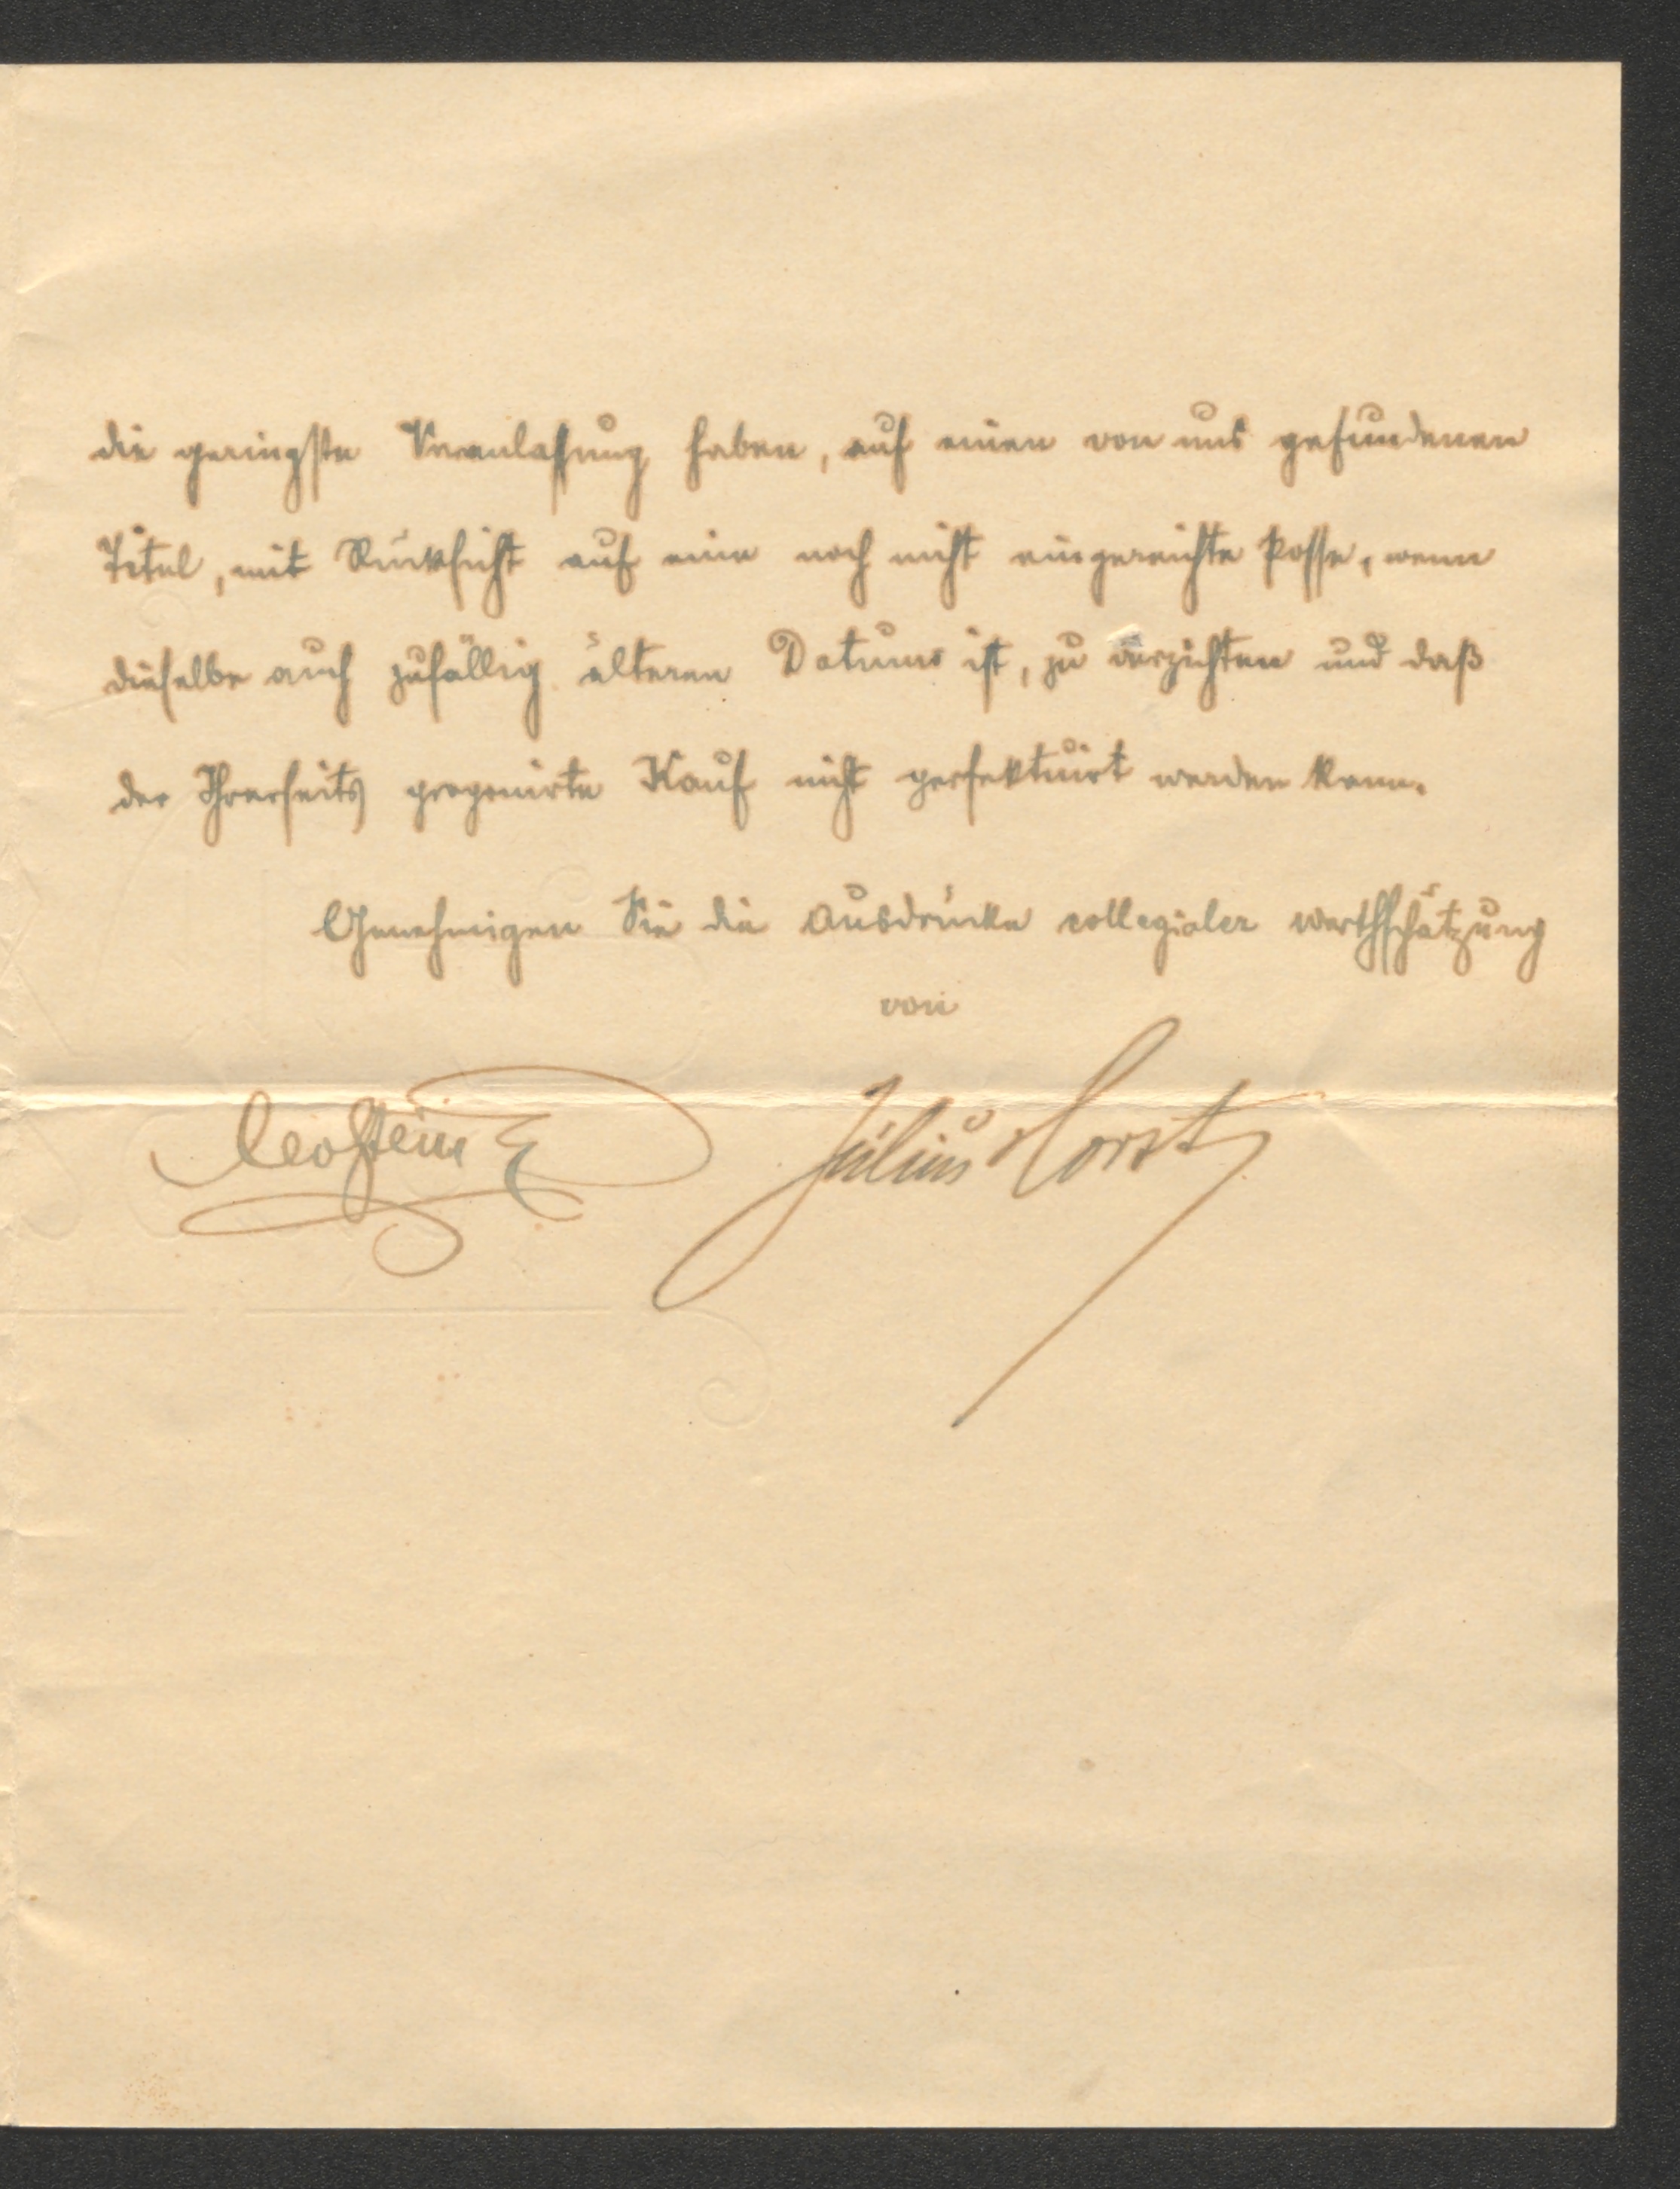 die geringste Veranlassung haben, auf einen von uns gefundenen
Titel, mit Rücksicht auf eine noch nicht eingereichte Posse, wenn
dieselbe auch zufällig älteren Datums ist, zu verzichten und daß
der Ihrerseits proponirte Kauf nicht perfektuirt werden kann.
Genehmigen Sie die Ausdrücke collegialer Werthschätzung
von
Leo Stein Julius Horst